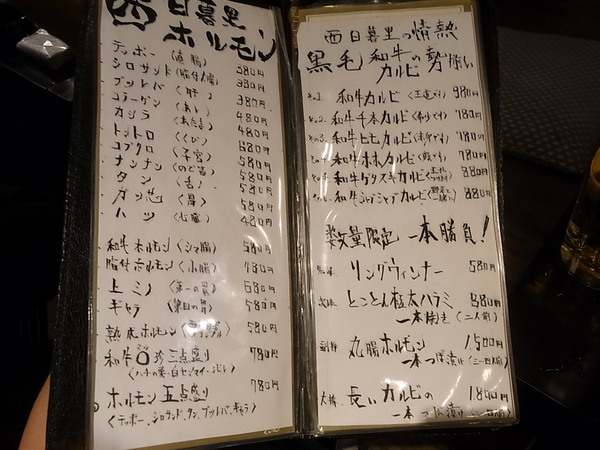 西日暮里
ホルモン
テッポー〈直腸〉 380円
シロサンド〈脂付大腸〉 380円
ブットバ〈肝〉 380円
コラーゲン 380円
カシラ〈あたま〉 480円
トントロ〈くび〉 480円
コブクロ〈子宮〉
ナンナン〈のど笛〉 580円
タン〈舌〉 580円
ガツ芯〈胃〉 580円
ハツ〈心臓〉 480円
和牛ホルモン〈シマ腸〉
脂付ホルモン〈小腸〉
上ミノ〈第一の胃〉 680円
ギャラ〈第四の胃〉 580円
熟成ホルモン 580円
和牛 珍三点盛り 780円
ホルモン五点盛り 780円
〈テッポー、シロサンド、タン、ブットバ、ギャラ〉
西日暮里の情熱
黒毛和牛の
カルビ勢揃い
和牛カルビ〈王道です〉 980円
和牛千本カルビ 780円
和牛ヒモカルビ 780円
和牛 カルビ 780円
和牛ゲタスキカルビ 880円
和牛シャブシャブカルビ 880円
数量限定 一本勝負!
リングウィンナー 580円
とことん極太ハラミ
一本焼き〈二人前〉
丸腸ホルモン 1500円
一本つぼ漬け〈三〜四人前〉
長いカルビの 1800円
一本つぼ漬け